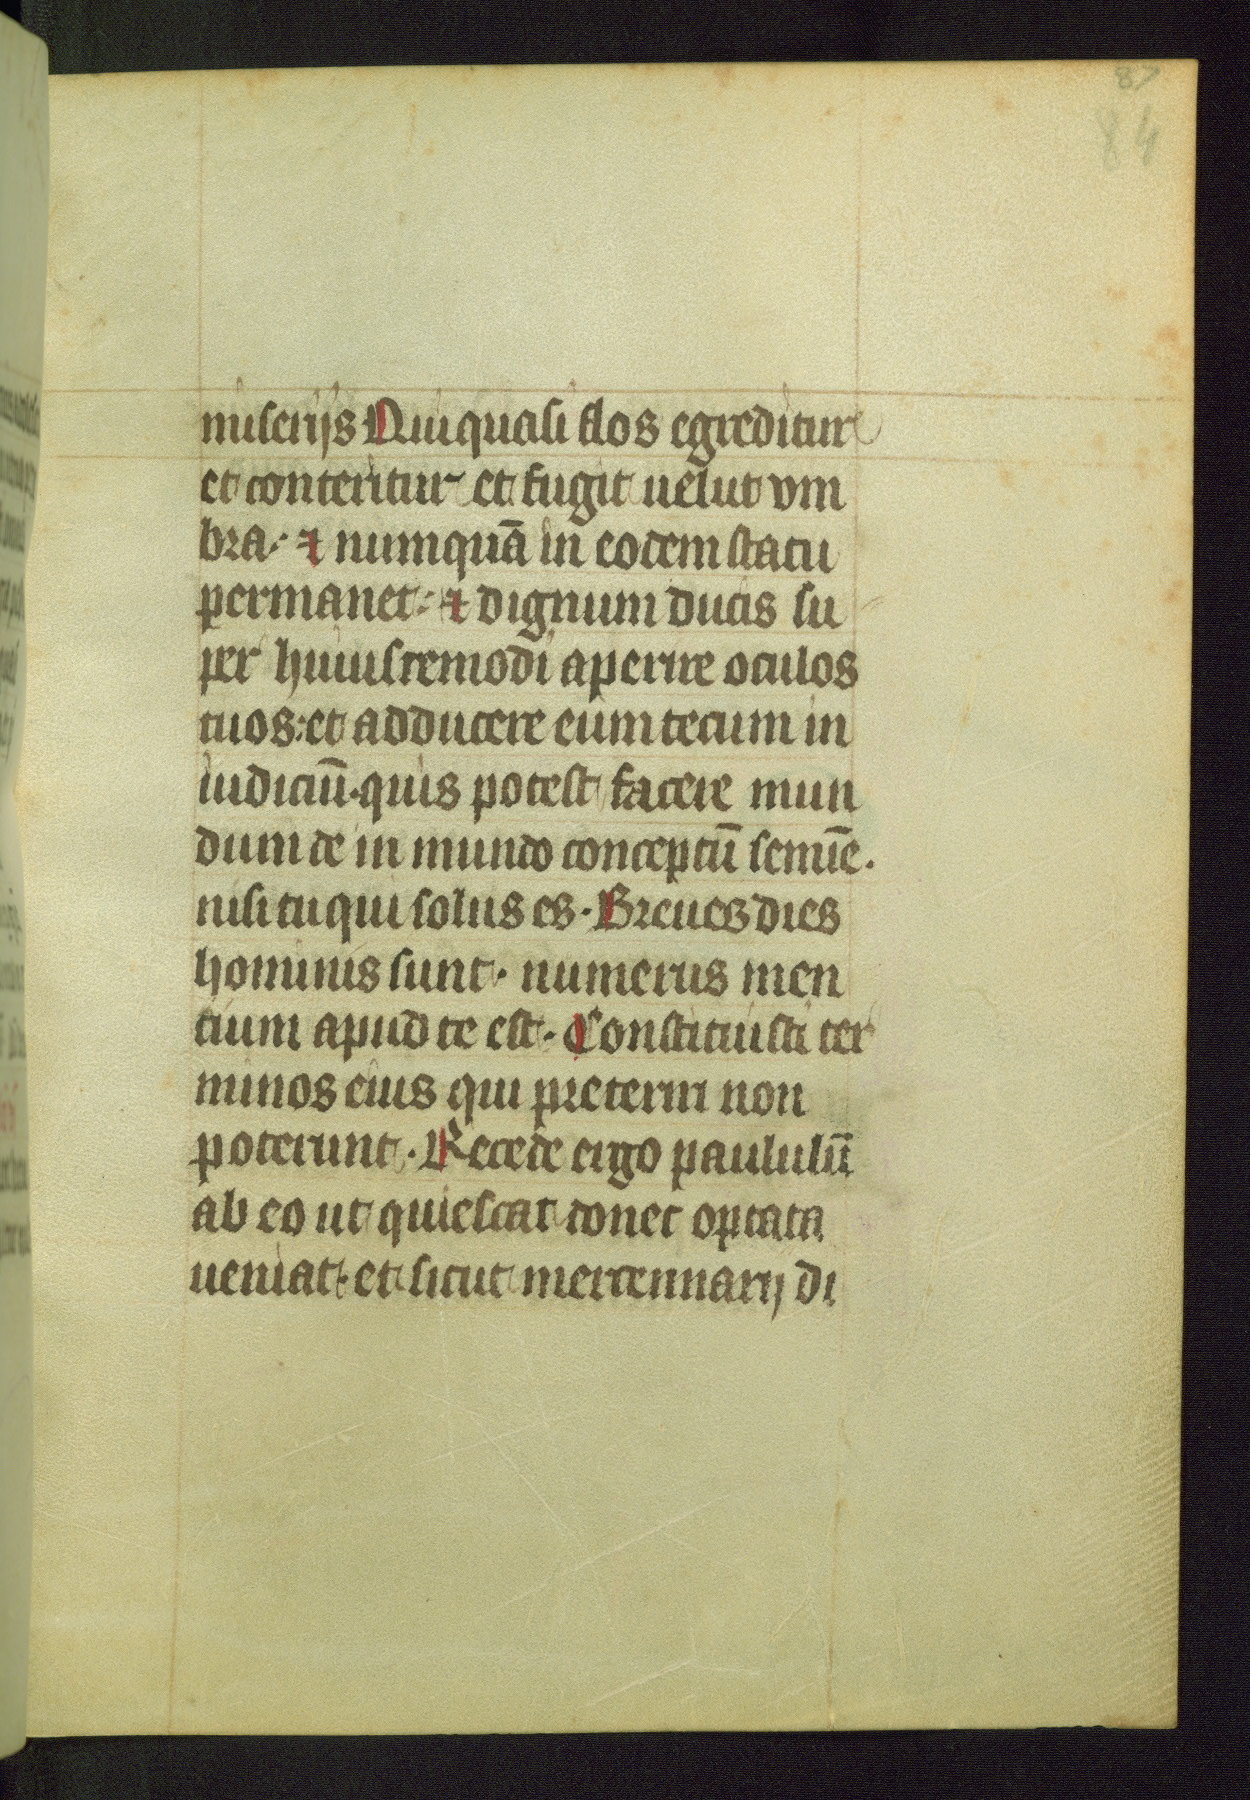 87
84
miserijs Qui quasi flos egreditur
et conteritur et fugit uelut vm
bra· ⁊ numquā in eodem statu
permanet· ⁊ dignum ducis su
per huiuscemodi aperire oculos
tuos· et adducere eum tecum in
iudiciū· quis potest facere mun
dum de in mundo conceptū semīe.
nisi tu qui solus es· Breues dies
hominis sunt· numerus men
cium apud te est· Constituisti ter
minos eius qui preteriri non
poterunt· Recede ergo paululū
ab eo ut quiescat donec optata
ueniat· et sicut mercennarij di